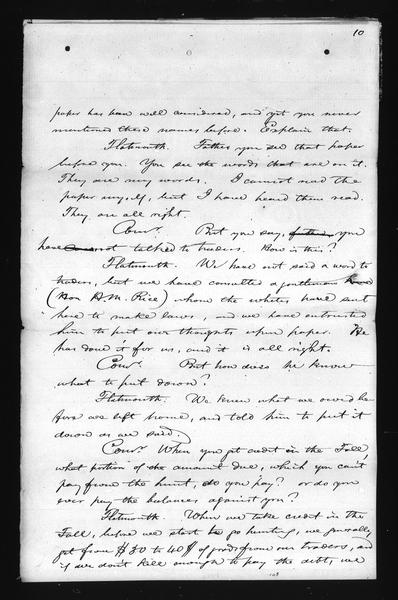 10
paper has been well considered, and yet you never
mentioned these names before. Explain that.
Flatmouth. Father you see that paper
before you. You see the words that are on it.
They are my words. I cannot read the
paper myself, but I have heard them read.
They are all right.
Comr. But you say, you
have not talked to traders. How is this?
Flatmouth. We have not said a word to
traders, but we have consulted a gentleman
(Hon H. M. Rice) whom the whites have sent
here to make laws, and we have entrusted
him to put our thoughts upon paper. He
has done it for us, and it is all right.
Comr. But how does he know
what to put down?
Flatmouth. We knew what we owed be
fore we left home, and told him to put it
down as we said.
Comr. When you get credit in the Fall,
what portion of the amount due, which you can't
pay from the hunt, do you pay? or do you
ever pay the balances against you?
Flatmouth. When we take credit in the
Fall, before we start to go hunting, we generally
get from $30 to 40$ of goods from our traders, and
if we don't kill enough to pay the debt, we